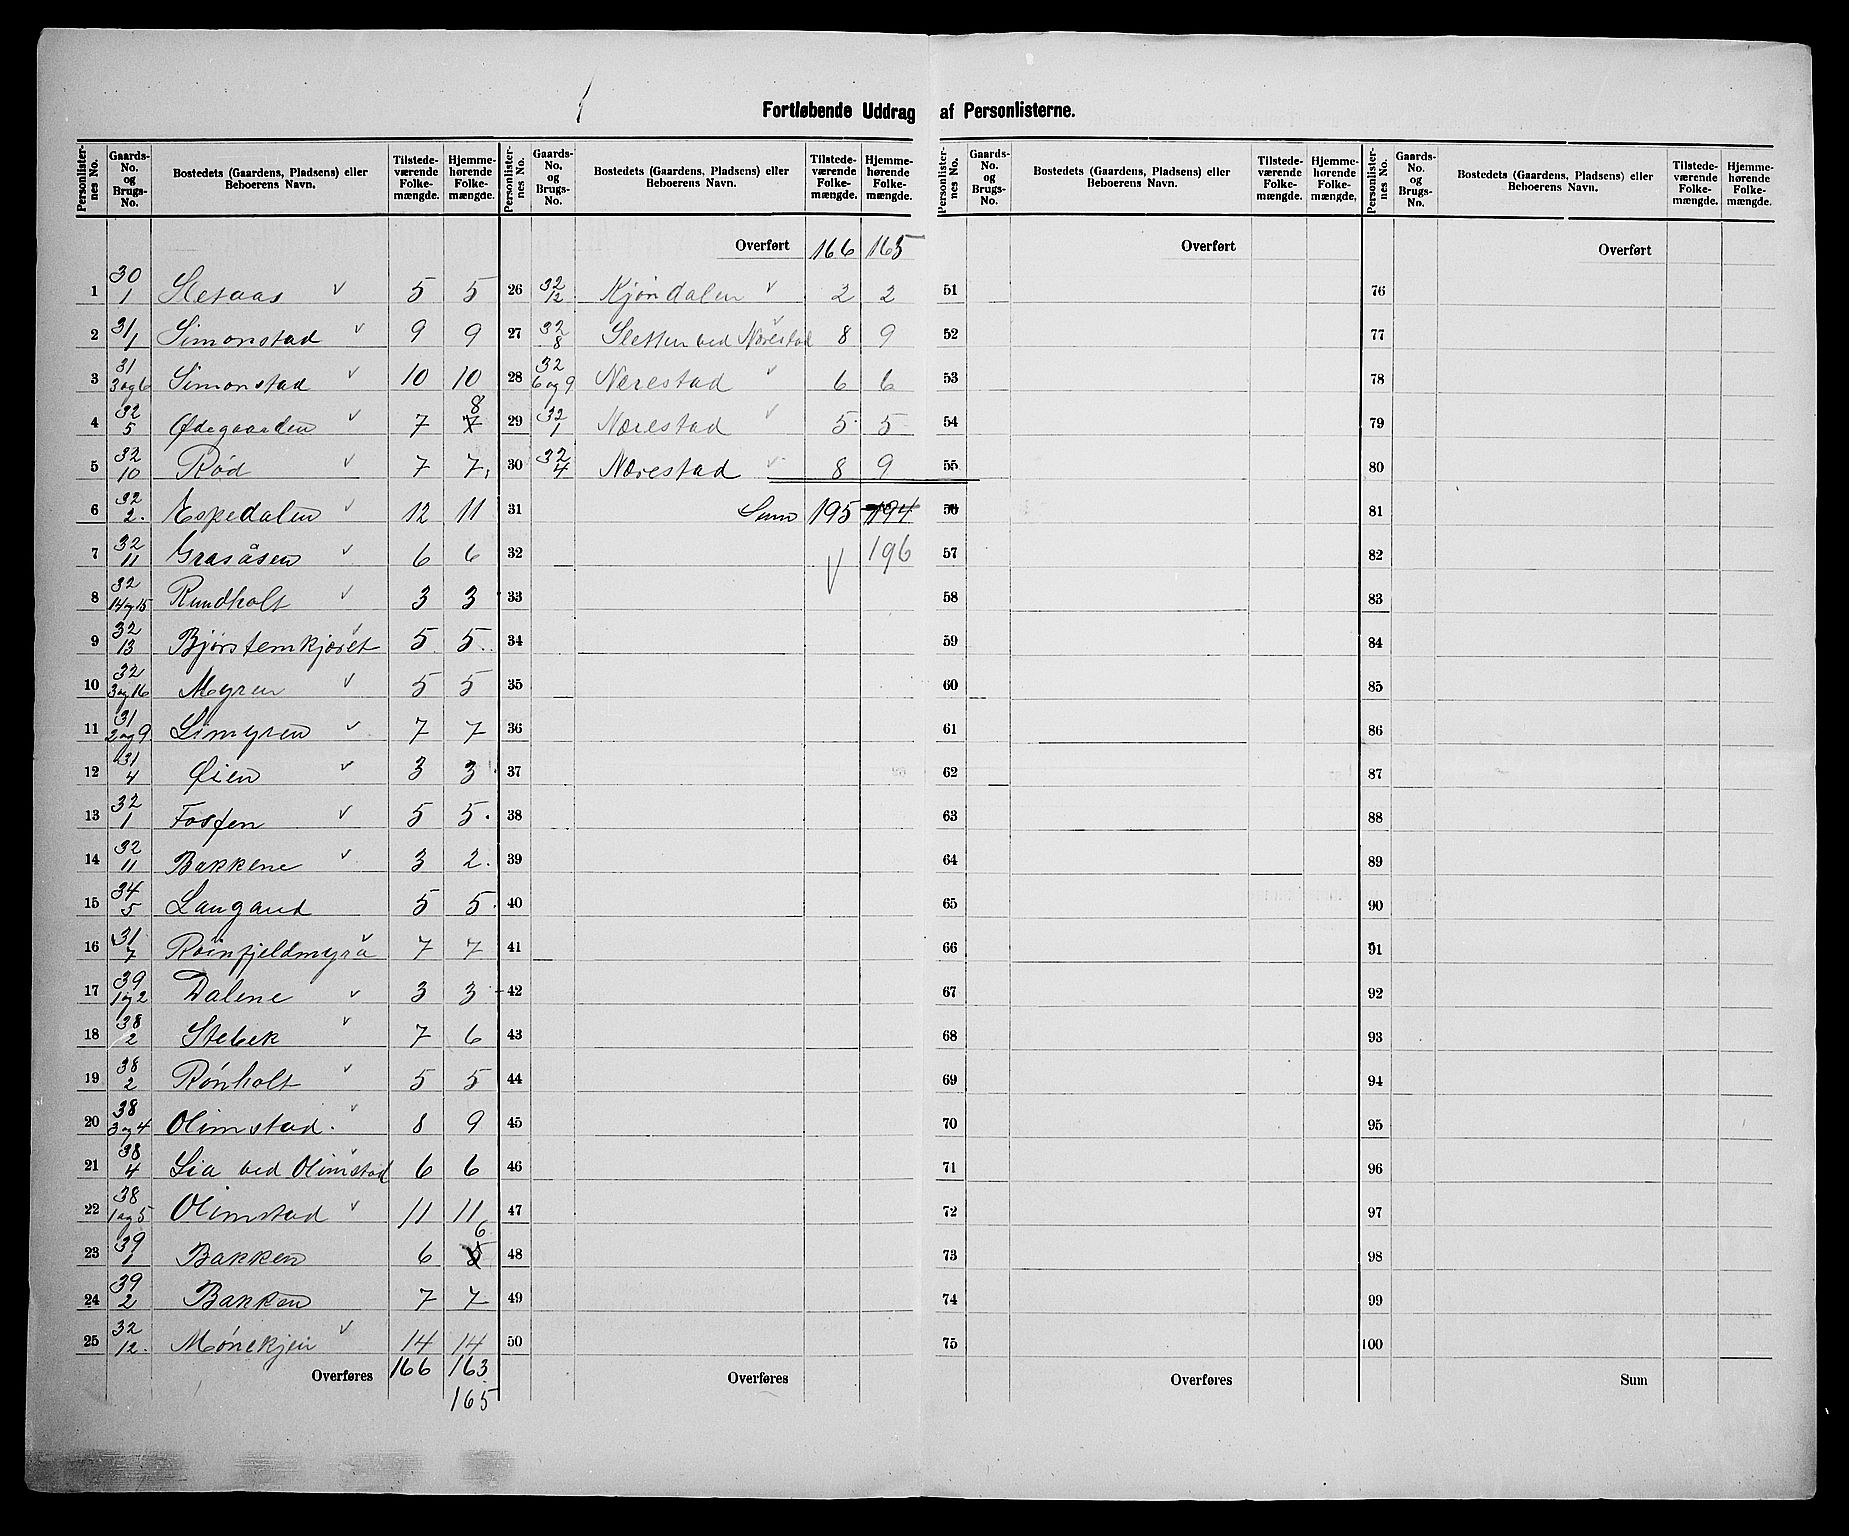 Fortløbende Uddrag af Personlisterne.
Personlister-nes No. | Gaards-No. og Brugs-No. | Bostedets (Gaardens, Pladsens) eller Beboerens Navn. | Tilstede-værende Folke-mængde. | Hjemme-hørende Folke-mængde.
1 30/1 Sletaas v 5 5
2 31/1 Simonstad v 9 9
3 31/3og6 Simonstad v 10 10
4 32/5 Ødegaarden v 7 7 8
5 32/10 Rød v 7 7
6 32/2. Espedalen v 12 11
7 32/11 Grasåsen v 6 6
8 32/14og15 Rundholt v 3 3
9 32/13 Bjørstemkjæret v 5 5
10 32/3og16 Myren v 5 5
11 31/2og9 Limyren v 7 7
12 31/4 Øien v 3 3
13 32/1 Fosfen v 5 5
14 32/11 Bakkene v 3 2
15 34/5 Laugand 5 5
16 31/7 Røinfjeldmyra v 7 7
17 39/1og2 Dalene v 3 3
18 38/2 Stebek v 7 6
19 38/2 Rønholt v 5 5
20 38/3og4 Olimstad. v 8 9
21 38/4 Lia ved Olimstad v 6 6
22 38/1og5 Olimstad v 11 11
23 39/1 Bakken 6 5 6
24 39/2 Bakken 7 7
25 32/12. Mønekjen v 14 14
Overføres 166 163
165
Personlister-nes No. | Gaards-No. og Brugs-No. | Bostedets (Gaardens, Pladsens) eller Beboerens Navn. | Tilstede-værende Folke-mængde. | Hjemme-hørende Folke-mængde.
Overført 166 165
26 32/12 Kjøndalen v 2 2
27 32/8 Sletten ved Nærestad v 8 9
28 32/6og9 Nærestad v 6 6
29 32/1 Nærestad v 5 5
30 32/4 Nærestad v 8 9
31 Sum 195 194
32 v 196
33
34
35
36
37
38
39
40
41
42
43
44
45
46
47
48
49
50
Overføres
Personlister-nes No. | Gaards-No. og Brugs-No. | Bostedets (Gaardens, Pladsens) eller Beboerens Navn. | Tilstede-værende Folke-mængde. | Hjemme-hørende Folke-mængde.
Overført
51
52
53
54
55
56
57
58
59
60
61
62
63
64
65
66
67
68
69
70
71
72
73
74
75
Overføres
Personlister-nes No. | Gaards-No. og Brugs-No. | Bostedets (Gaardens, Pladsens) eller Beboerens Navn. | Tilstede-værende Folke-mængde. | Hjemme-hørende Folke-mængde.
Overført
76
77
78
79
80
81
82
83
84
85
86
87
88
89
90
91
92
93
94
95
96
97
98
99
100
Sum